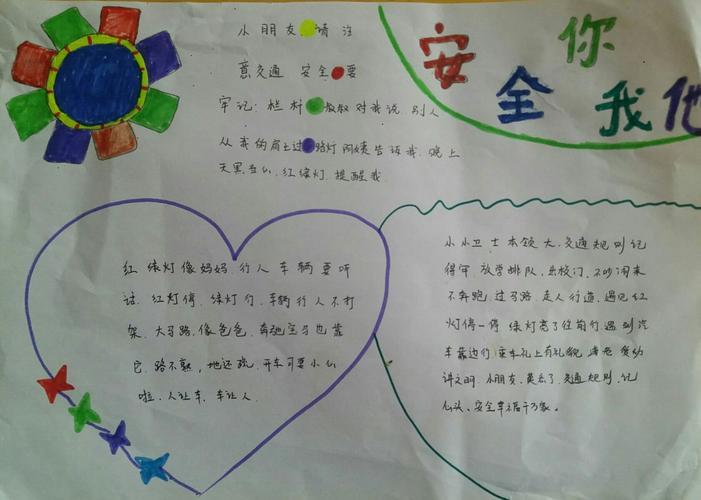 安全你我他
小朋友 请注
意交通 安全 要
牢记：栏杆 叔叔对我说 别人
从我的肩上过 路灯阿姨告诉我 晚上
天黑当心 红绿灯 提醒我
红 绿灯 像妈妈 行人 车辆 要 听
话 红灯停 绿灯行 车辆 行人 不打
架 大马路 像爸爸 奔驰宝马也靠
它 路不熟 地还疏 开车可要小心
啦 人让车 车让人
小小卫士 本领大 交通规则记
得牢 放学排队 出校门 不吵闹来
不奔跑 过马路 走人行道 遇见红
灯停一停 绿灯亮了往前行 遇到汽
车靠边行 乘车礼上有礼貌 发动
讲文明 小朋友 交通 规则 记
心头 安全幸福千万家